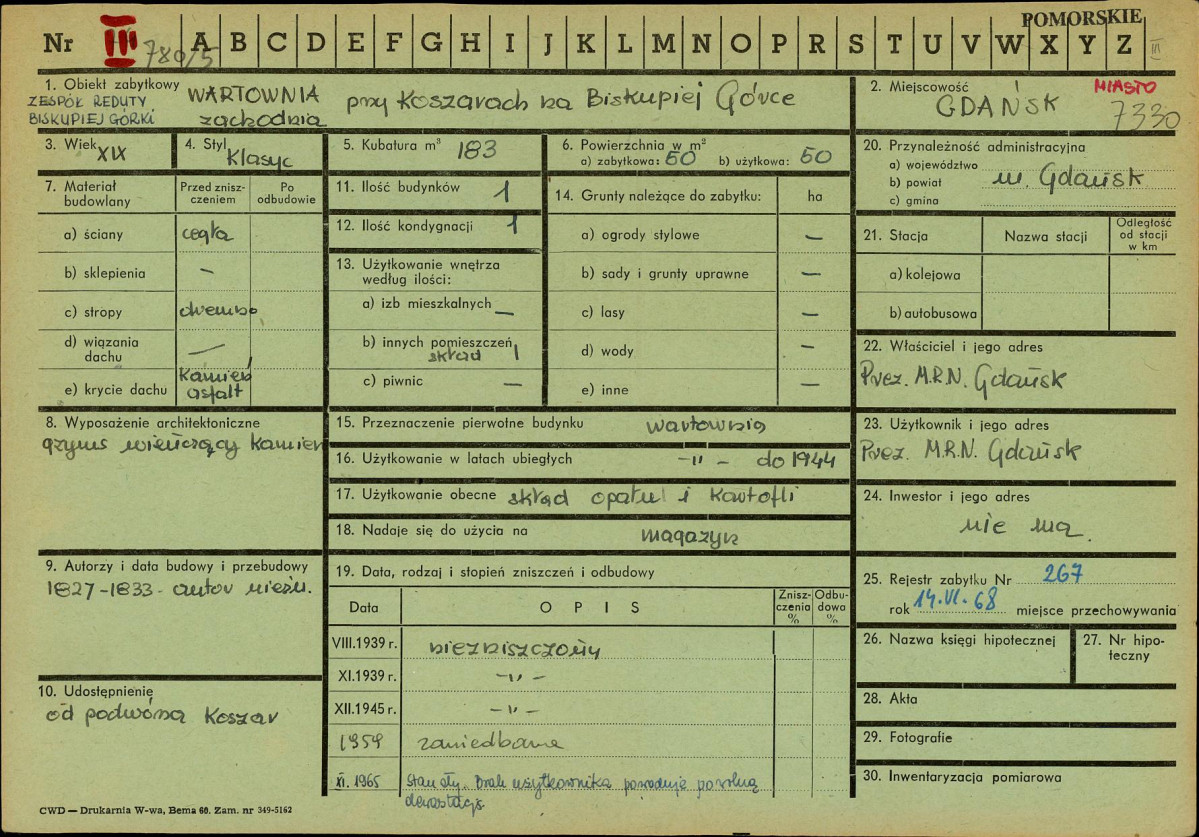 POMORSKIE
Nr III 780/5 A B C D E F G H I J K L M N O P R S T U V W X Y Z III
1. Obiekt zabytkowy WARTOWNIA przy Koszarach na Biskupiej Górce
ZESPÓŁ REDUTY
BISKUPIEJ GÓRKI zachodnia
2. Miejscowość MIASTO
GDAŃSK 7330
3. Wiek XIX
4. Styl Klasyc
5. Kubatura m³ 183
6. Powierzchnia w m²
a) zabytkowa: 50 b) użytkowa: 50
20. Przynależność administracyjna
a) województwo
b) powiat m. Gdańsk
c) gmina
7. Materiał budowlany
Przed zniszczeniem
Po odbudowie
a) ściany cegła
b) sklepienia —
c) stropy drewno
d) wiązania dachu —
e) krycie dachu kamień asfalt
11. Ilość budynków 1
12. Ilość kondygnacji 1
13. Użytkowanie wnętrza
według ilości:
a) izb mieszkalnych —
b) innych pomieszczeń
skład 1
c) piwnic —
14. Grunty należące do zabytku: ha
a) ogrody stylowe —
b) sady i grunty uprawne —
c) lasy —
d) wody —
e) inne —
21. Stacja Nazwa stacji Odległość od stacji w km
a) kolejowa
b) autobusowa
22. Właściciel i jego adres
Prez. M.R.N. Gdańsk
8. Wyposażenie architektoniczne
gzyms wieńczący kamien
15. Przeznaczenie pierwotne budynku wartownia
16. Użytkowanie w latach ubiegłych -"- do 1944
17. Użytkowanie obecne skład opału i kartofli
18. Nadaje się do użycia na magazyn
23. Użytkownik i jego adres
Prez. M.R.N. Gdańsk
24. Inwestor i jego adres
nie ma.
9. Autorzy i data budowy i przebudowy
1827-1833 - autor nieźn.
10. Udostępnienie
od podwórza Koszar
19. Data, rodzaj i stopień zniszczeń i odbudowy
Data OPIS Zniszczenia % Odbudowa %
VIII.1939 r. niezniszczony
XI.1939 r. -"-
XII.1945 r. -"-
1959 zaniedbane
XI. 1965 Stan zły. Brak użytkownika powoduje powolną
dewastację.
25. Rejestr zabytku Nr 267
rok 14.VI.68 miejsce przechowywania
26. Nazwa księgi hipotecznej
27. Nr hipoteczny
28. Akta
29. Fotografie
30. Inwentaryzacja pomiarowa
CWD — Drukarnia W-wa, Bema 60. Zam. nr 349-5162